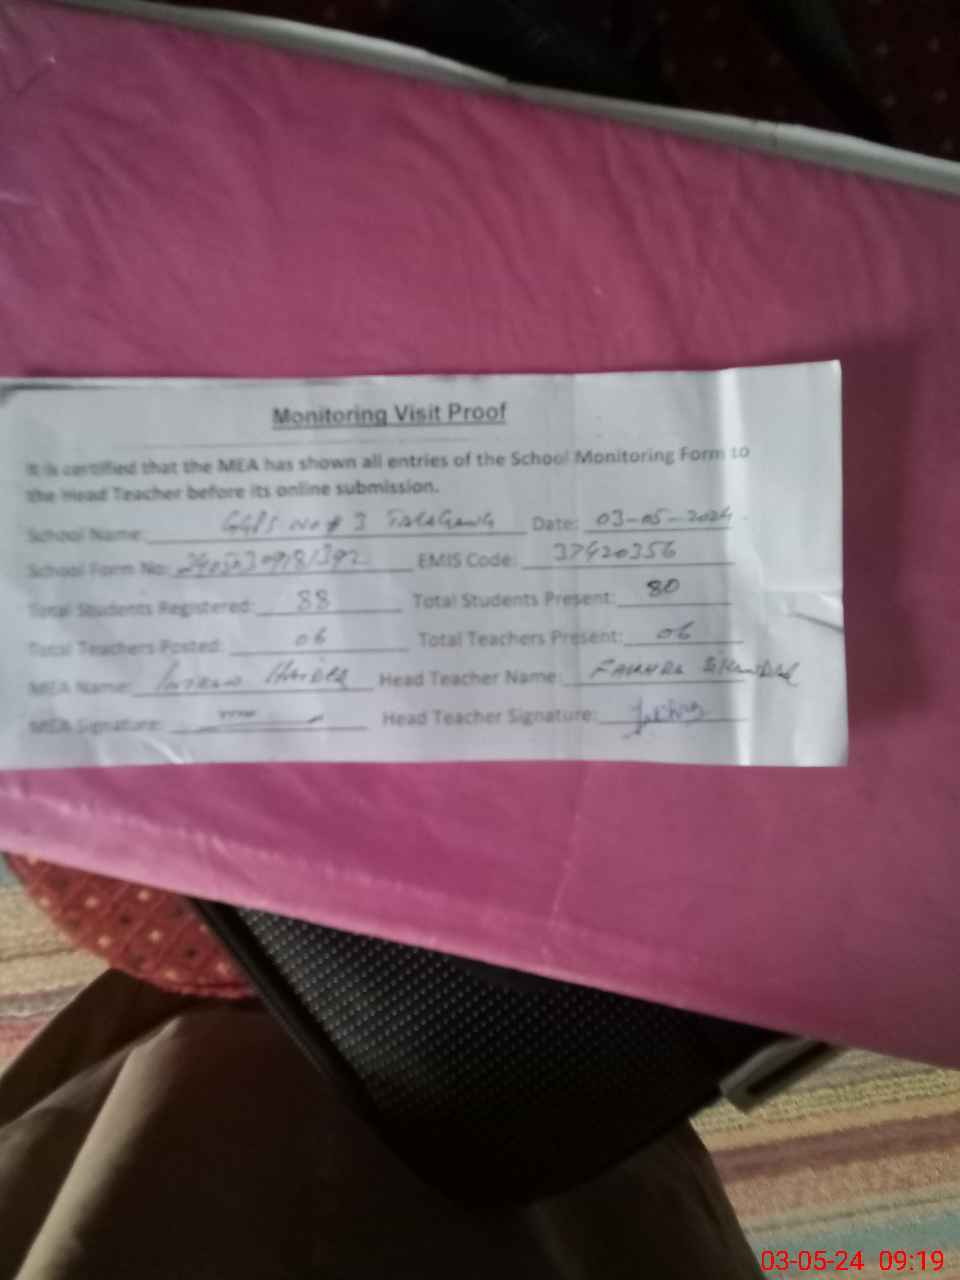 Monitoring Visit Proof
It is certified that the MEA has shown all entries of the School Monitoring Form to
the Head Teacher before its online submission.
School Name: No # 3 Date: 03-05-2024
School Form No: EMIS Code: 37420356
Total Students Registered: 88 Total Students Present: 80
Total Teachers Posted: 06 Total Teachers Present: 06
MEA Name: Head Teacher Name:
MEA Signature: Head Teacher Signature:
03-05-24 09:19